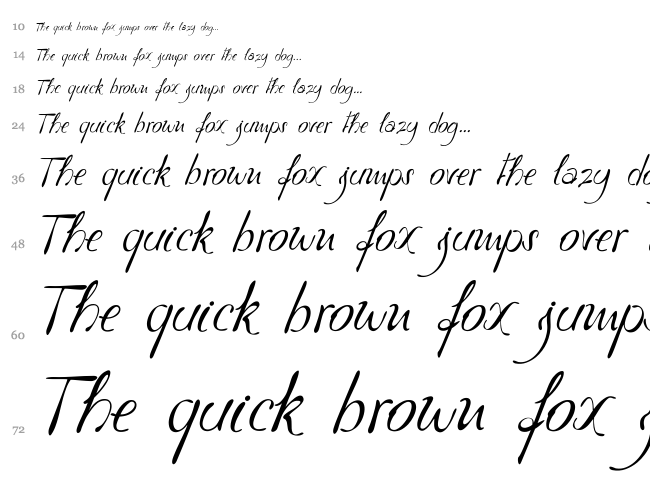 10 The quick brown fox jumps over the lazy dog...
14 The quick brown fox jumps over the lazy dog...
18 The quick brown fox jumps over the lazy dog...
24 The quick brown fox jumps over the lazy dog...
36 The quick brown fox jumps over the lazy do
48 The quick brown fox jumps over
60 The quick brown fox jump
72 The quick brown fox j